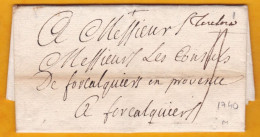 A Messieurs
Messieurs Les Consuls
De forcalquiers en provence
A forcalquiers
1740